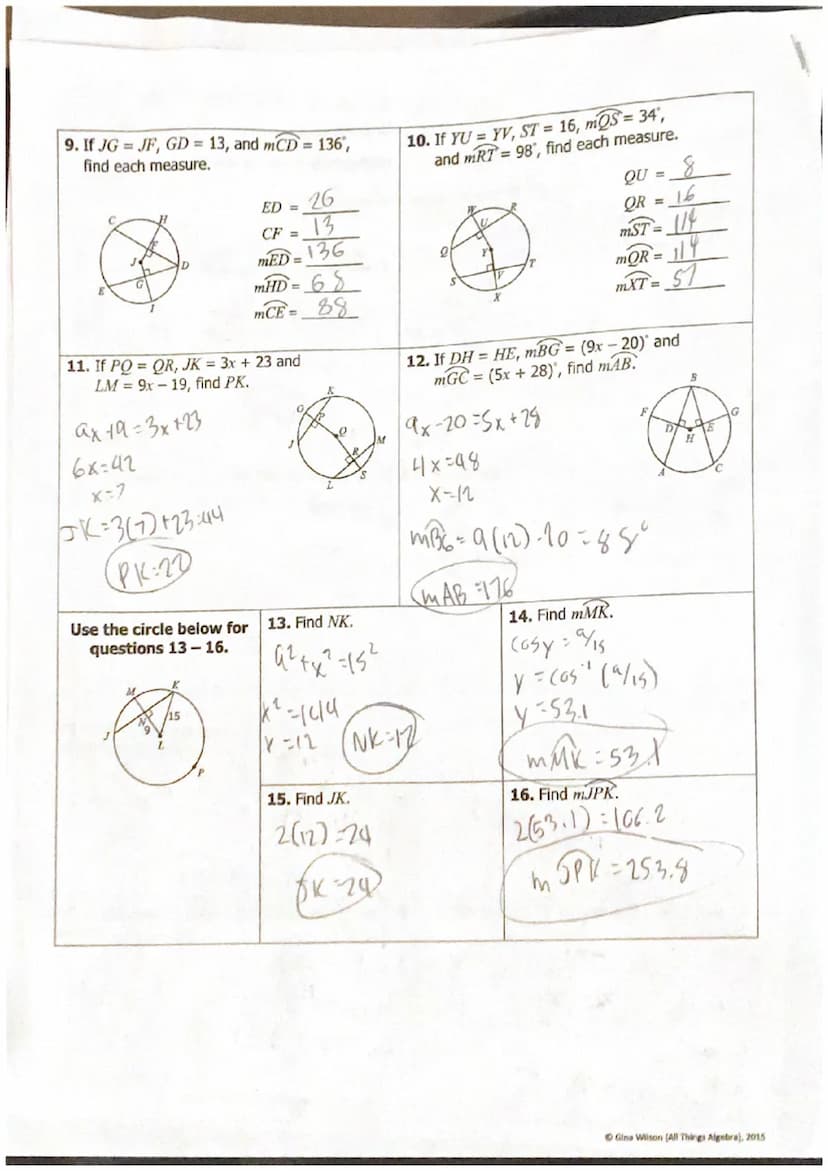 9. If JG = JF, GD = 13, and mCD = 136°,
find each measure.
ED = 26
CF = 13
mED = 136
mHD = 68
mCE = 88
C
H
F
J
D
G
E
I
10. If YU = YV, ST = 16, mQS = 34°,
and mRT = 98°, find each measure.
QU = 8
QR = 16
mST = 114
mQR = 114
mXT = 57
W
R
U
Q
Y
T
S
V
X
11. If PQ = QR, JK = 3x + 23 and
LM = 9x – 19, find PK.
9x +9 = 3x +23
6x=42
x=7
JK=3(7)+23=44
PK=22
K
O
P
Q
J
M
R
L
S
12. If DH = HE, mBG = (9x – 20)° and
mGC = (5x + 28)°, find mAB.
9x-20=5x+28
4x=48
x=12
mBG = 9(12)-20 = 88°
mAB=176
B
F
G
D
E
H
A
C
Use the circle below for
questions 13 – 16.
M
K
15
N
9
J
L
P
13. Find NK.
9²+x²=15²
x²=144
x=12
NK=12
14. Find mMK.
cosy = 9/15
y = cos⁻¹ (9/15)
y=53.1
mMK = 53.1
15. Find JK.
2(12)=24
JK=24
16. Find mJPK.
2(53.1)=106.2
mJPK=253.8
© Gina Wilson (All Things Algebra), 2015